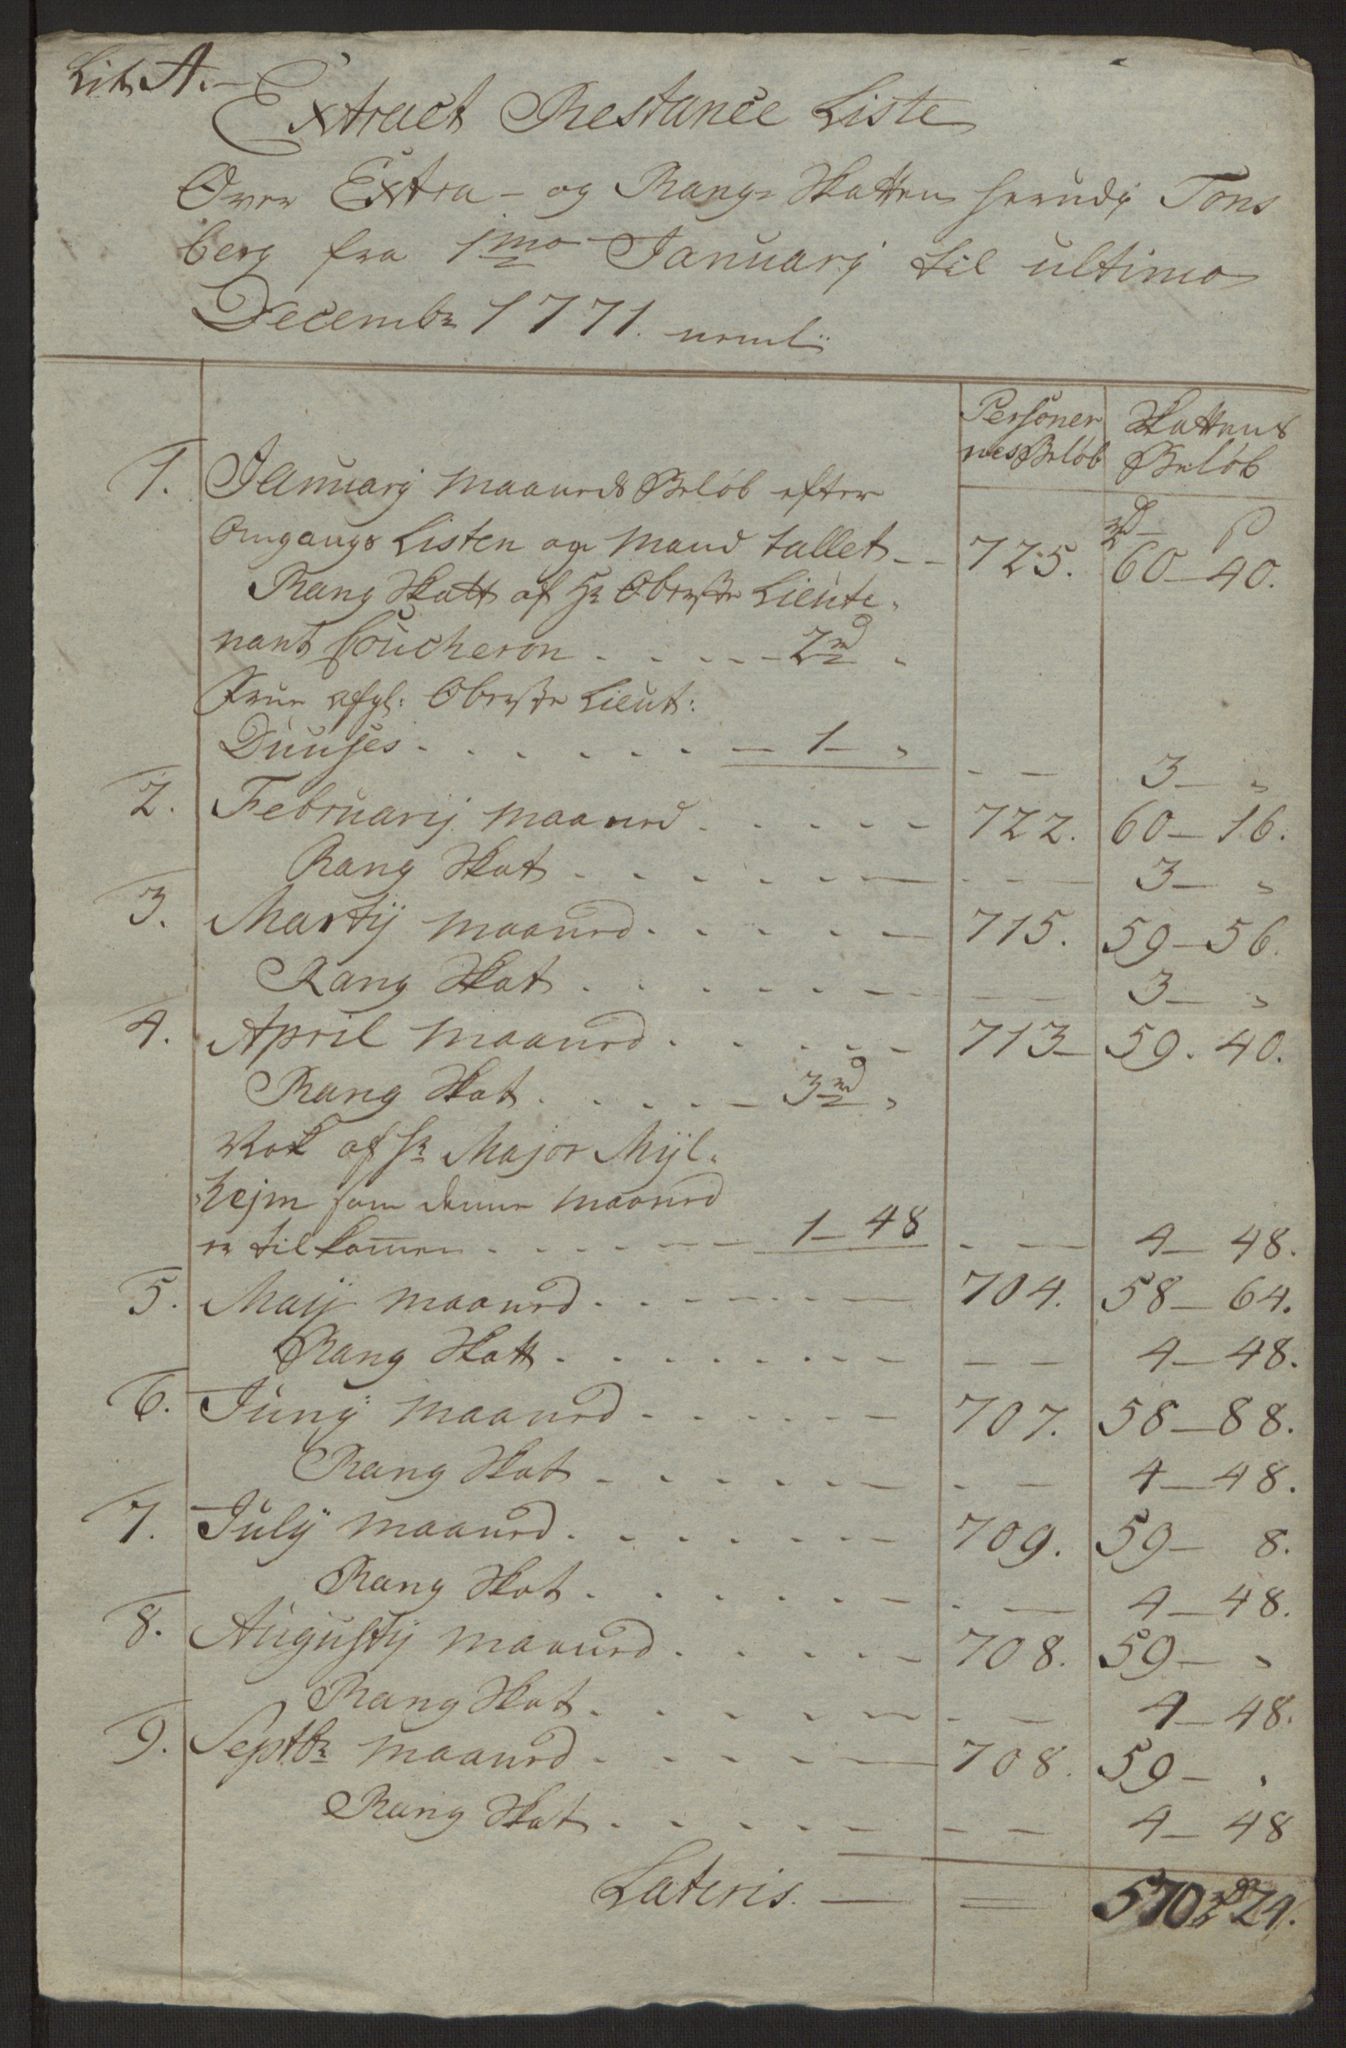 Lit A.
Extract Restance Liste
Over Extra- og Rang-Skatten herudj Tons
berg fra 1mo Januarj til ultimo
Decembr 1771. neml:
Personer Skattens
nes Beløb Beløb
1. Januarj Maaneds Beløb efter
Omgangs Listen og Mand tallet -- 725. 60 rd - 40 s.
Rang Skatt af Hr Oberste Lieute-
nant Coucheron . . . . . 2 rd "
Frue afgl: Oberste Lieut:
Duuses . . . . . . . 1 - " - - 3 - "
2. Februarij Maaned . . . . . 722. 60 - 16.
Rang Skat . . . . . . - - 3 - "
3. Martij Maaned . . . . . 715. 59 - 56.
Rang Skat . . . . . . - - 3 - "
4. April Maaned . . . . . 713 - 59. 40.
Rang Skat . . . . . 3 rd "
af Hr Major Mÿl-
hejm som denne Maaned
er tilkommen . . . . . . 1 - 48 - - 4 - 48.
5. Maij Maaned . . . . . . 704. 58 - 64.
Rang Skatt . . . . . . . - - 4 - 48.
6. Junÿ Maaned . . . . . . 707. 58 - 88.
Rang Skat . . . . . . - - 4 - 48.
7. Julÿ Maaned . . . . . . 709. 59 - 8.
Rang Skat . . . . . . - - 4 - 48.
8. Augustÿ Maaned . . . . . 708. 59 - "
Rang Skat . . . . . . - - 4 - 48.
9. Septbr Maaned . . . . . 708. 59 - "
Rang Skat . . . . . . - - 4 - 48
Lateris. — = 570 rd 24.